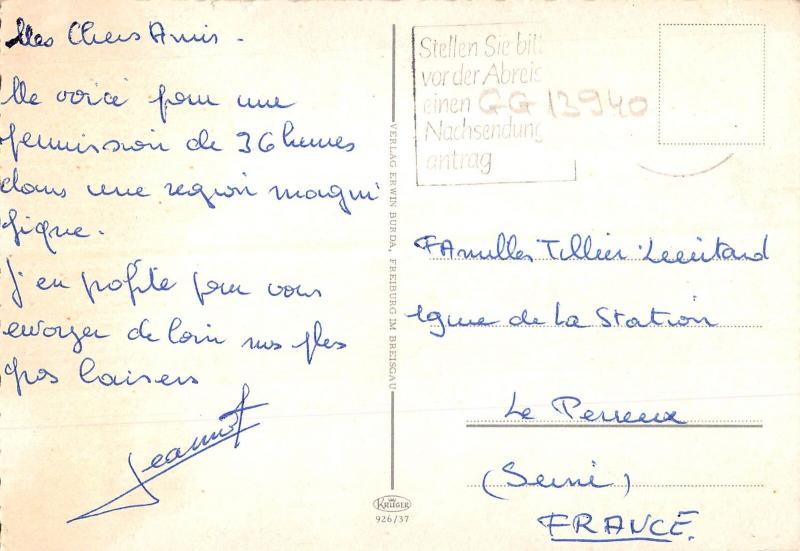 Mes Chers Amis -
Me voici pour une
permission de 36 heures
dans une region magni
fique.
J'en profite pour vous
envoyer de loin nos plus
gros baisers
Jeannot
VERLAG ERWIN BURDA, FREIBURG IM BREISGAU
KRÜGER
926/37
Stellen Sie bit
vor der Abreis
einen
Nachsendung
antrag
GG 13940
FAmilles Tellier
de La Station
Le Perreux
(Seine)
FRANCE.